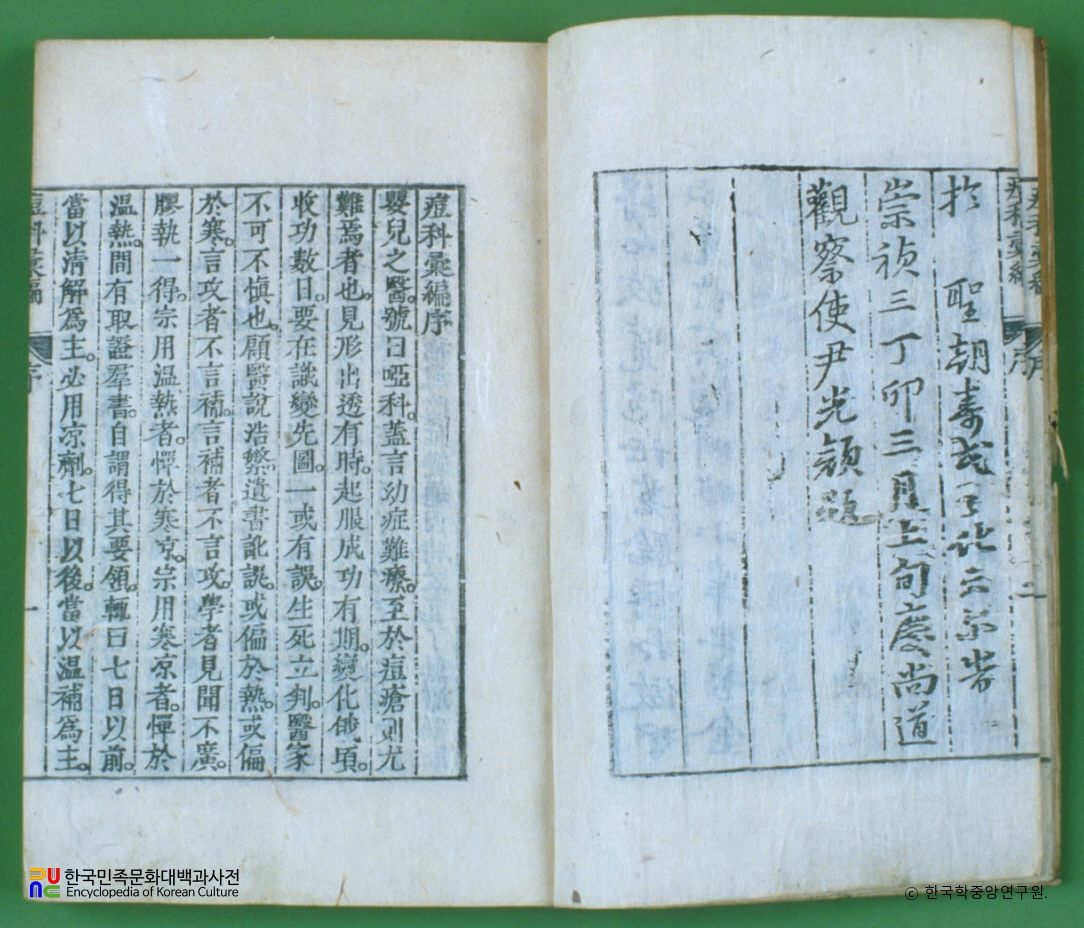 於 聖朝壽民之化云爾哉
崇禎三丁卯三月上旬慶尚道
觀察使尹光顏題
痘科彙編
序
二
痘科彙編序
嬰兒之醫。號曰啞科。蓋言幼症難療。至於痘瘡則尤
難焉者也。見形出透有時。起脹成功有期。變化俄頃。
收功數日。要在識變先圖。一或有誤。生死立判。醫家
不可不慎也。顧醫說浩繁。遺書訛誤。或偏於熱。或偏
於寒。言攻者不言補。言補者不言攻。學者見聞不廣。
膠執一得。宗用溫熱者。憚於寒凉。宗用寒凉者。憚於
溫熱。間有取證羣書。自謂得其要領。輒曰七日以前。
當以清解爲主。必用凉劑。七日以後。當以溫補爲主。
痘科彙編
序
一
한국민족문화대백과사전
Encyclopedia of Korean Culture
© 한국학중앙연구원.